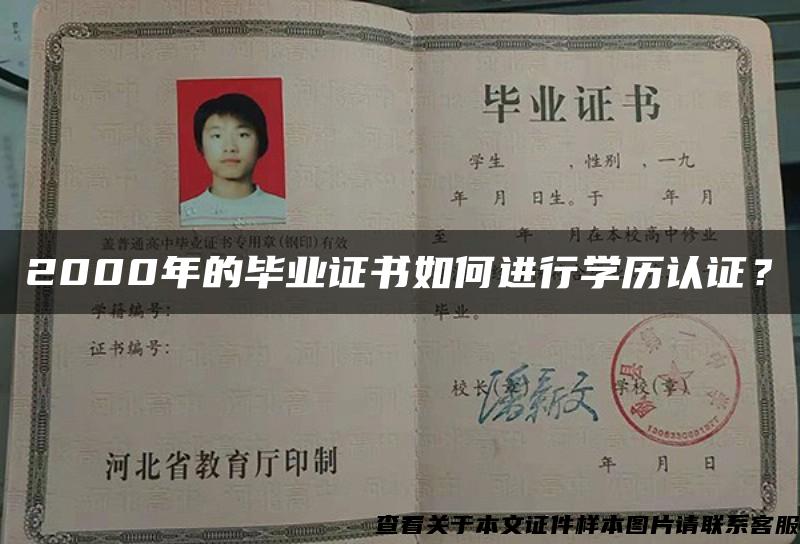 毕业证书
学生 ,性别 ,一九
年 月 日生。于 年 月
至 年 月在本校高中修业
盖普通高中毕业证书专用章(钢印)有效
2000年的毕业证书如何进行学历认证？
学籍编号:
毕业。
证书编号:
校长(章)
潘新文
学校(章)
县第一中学
河北省教育厅印制
年 月 日
查看关于本文证件样本图片请联系客服